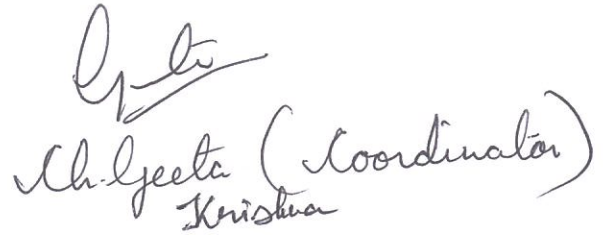 Geeta
Ch. Geeta (Coordinator)
Krishna